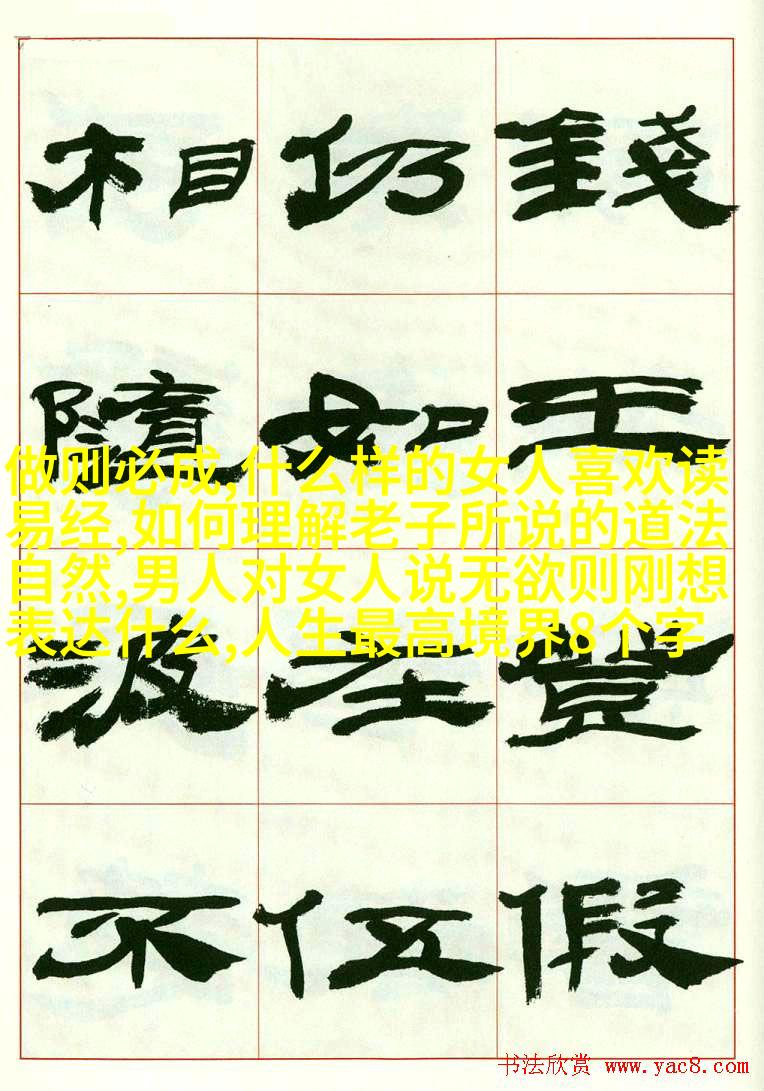 錢王登假
仍如在伍
相隨波不
做则必成,什么样的女人喜欢读
易经,如何理解老子所说的道法
自然,男人对女人说无欲则刚想
表达什么,人生最高境界8个字
书法欣赏 www.yac8.com